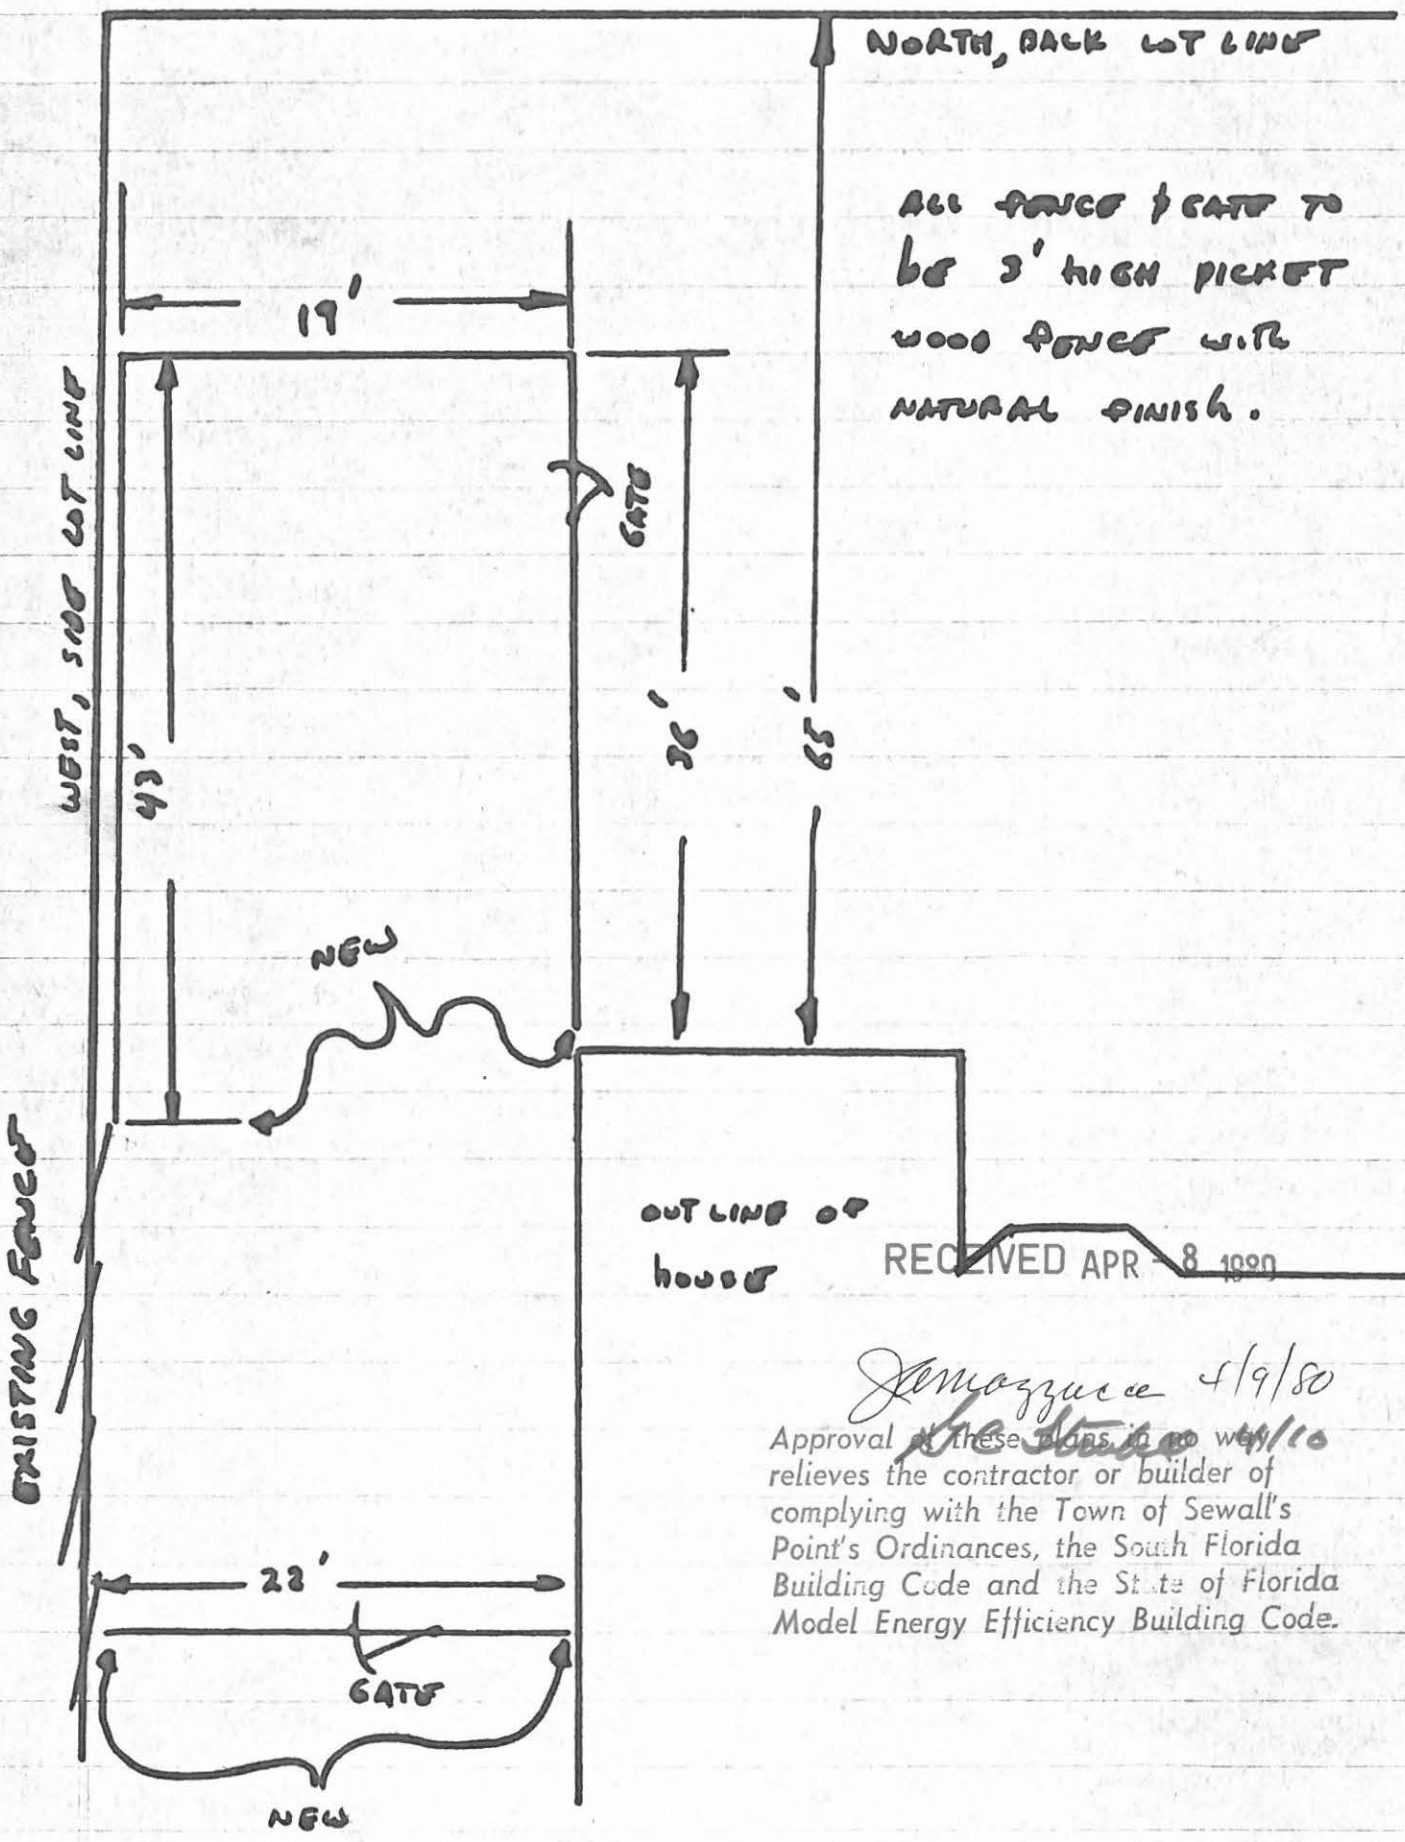 NORTH, BACK LOT LINE
ALL FENCE & GATE TO
be 3' HIGH PICKET
WOOD FENCE with
NATURAL FINISh.
19'
WEST, SIDE LOT LINE
43'
GATE
36'
65'
NEW
EXISTING FENCE
OUT LINE OF
houSE
RECEIVED APR - 8 1980
4/9/80
Approval of these plans in no way
relieves the contractor or builder of
complying with the Town of Sewall's
Point's Ordinances, the South Florida
Building Code and the State of Florida
Model Energy Efficiency Building Code.
22'
GATE
NEW